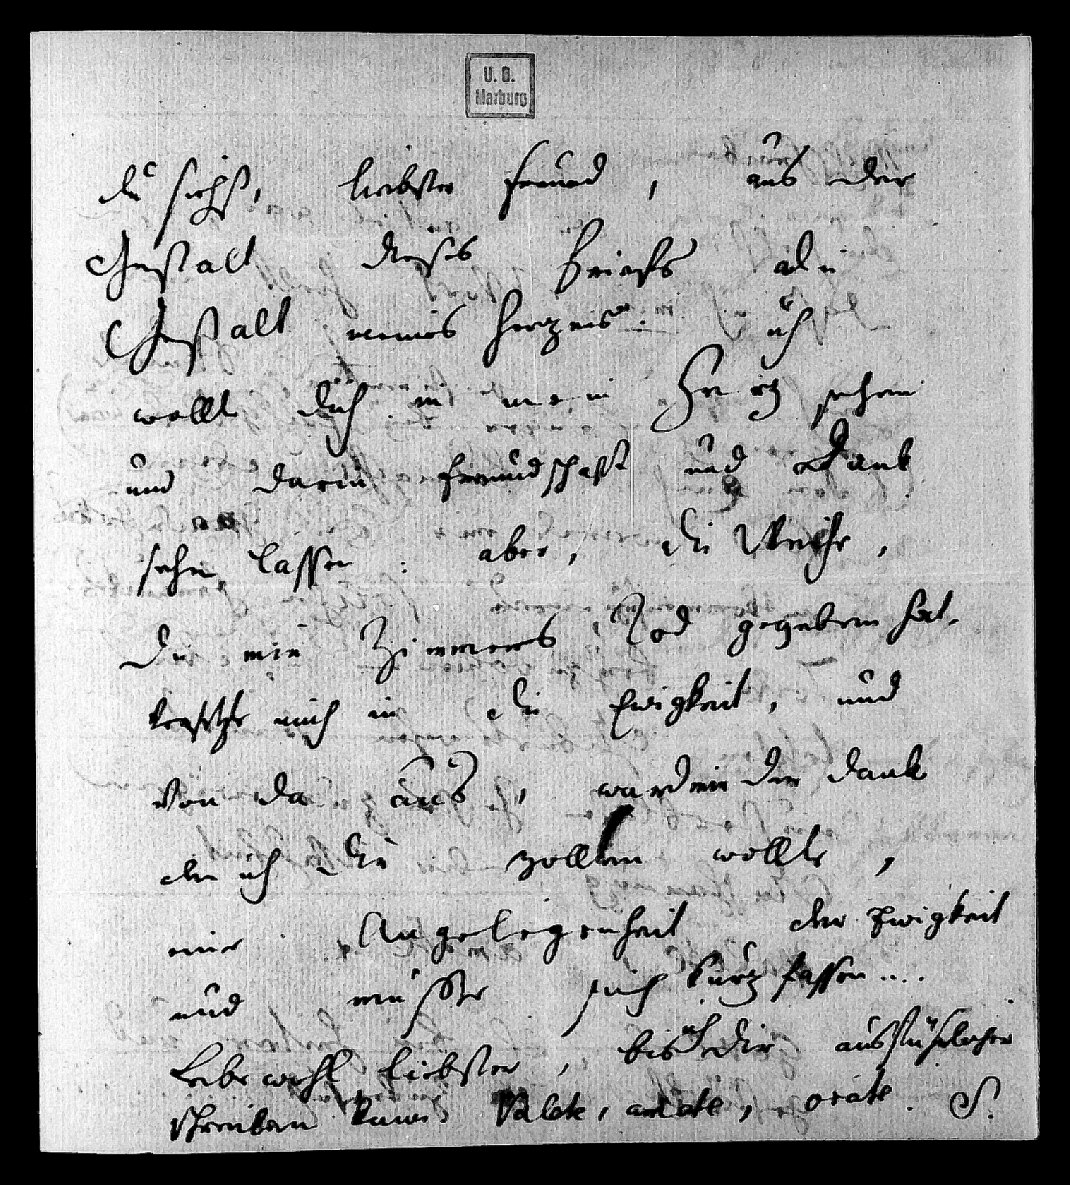 U. B.
Marburg
du siehst, liebster Freund, aus der
Gestalt dieses Briefs die
Gestalt meines Herzens: ich
wollt dich in mein Herz sehen
und darin Freundschaft und Dank
sehn lassen: aber, die Weihe,
die mir Zimmers Tod gegeben hat,
versetzte mich in die Ewigkeit, und
von da aus, wurden der Dank
den ich dir zollen wollte,
eine Angelegenheit der Ewigkeit
und müsste sich kurz fassen....
Lebe wohl liebster, bis ich dir ausführlicher
schreiben kann. Valete, orate. S.